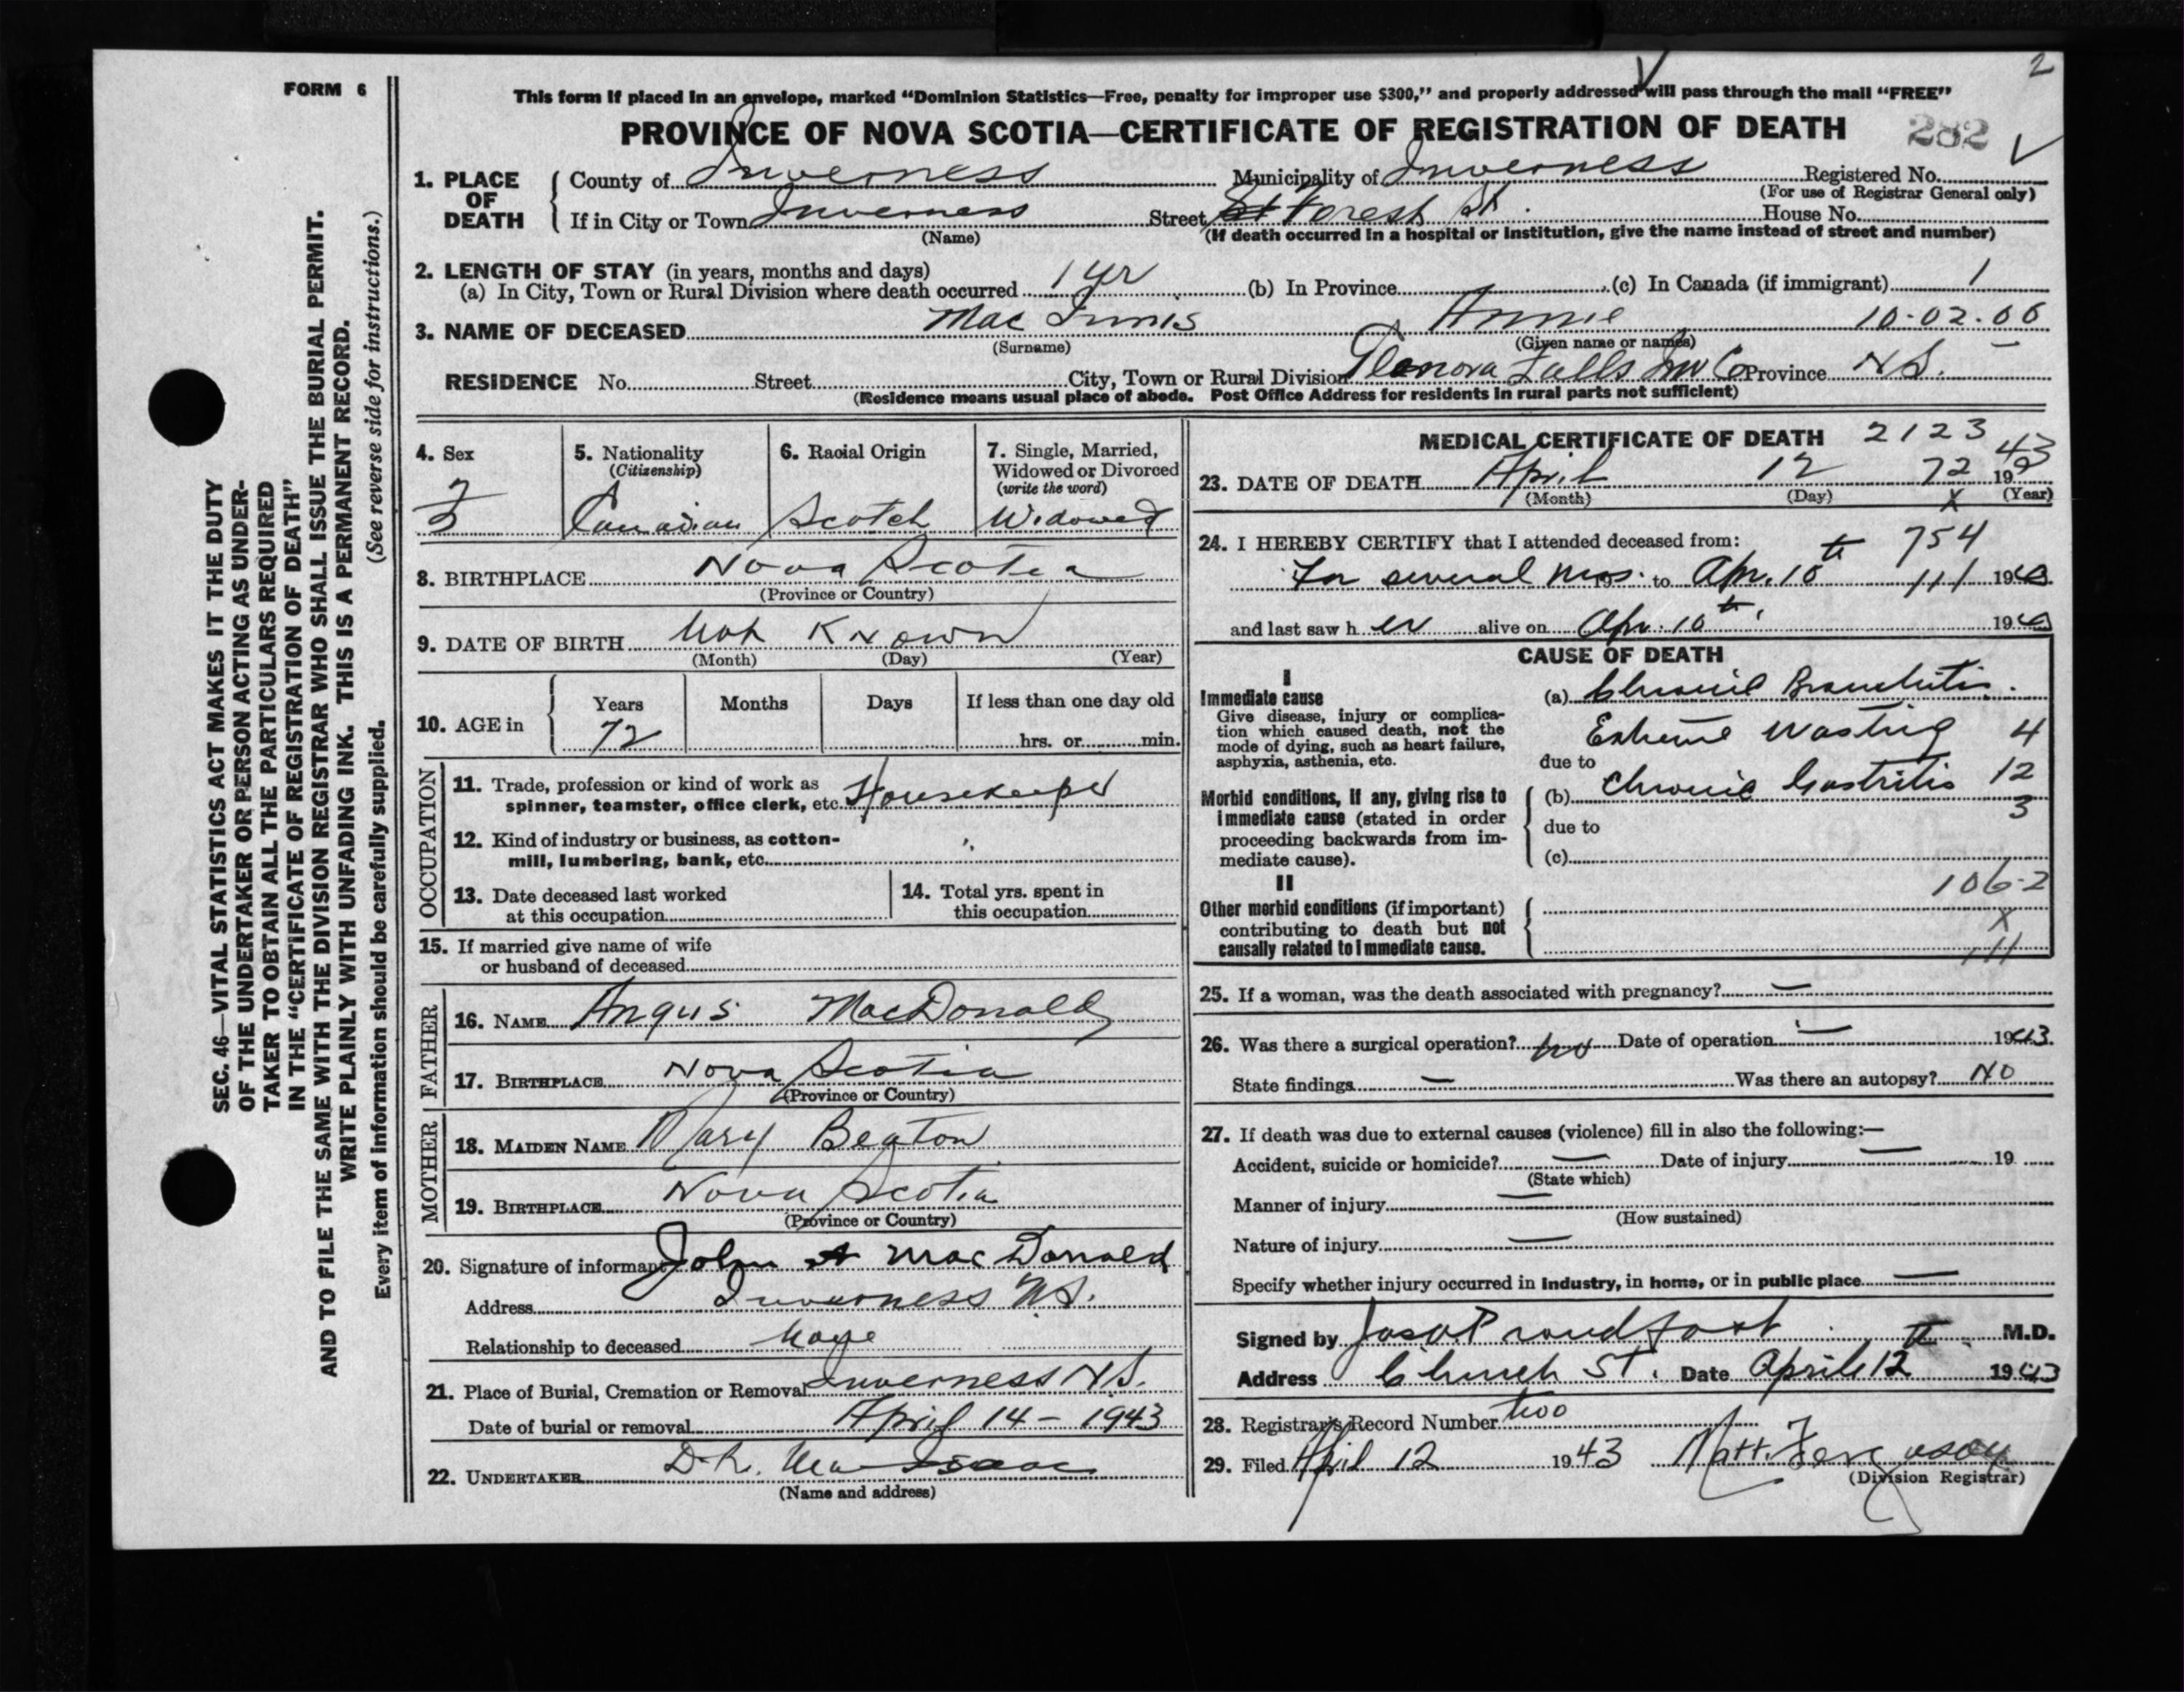 2
FORM 6
This form if placed in an envelope, marked "Dominion Statistics—Free, penalty for improper use $300," and properly addressed will pass through the mail "FREE"
PROVINCE OF NOVA SCOTIA—CERTIFICATE OF REGISTRATION OF DEATH 282
1. PLACE OF DEATH County of Inverness Municipality of Inverness Registered No.
(For use of Registrar General only)
If in City or Town Inverness Street Forest St. House No.
(Name) (If death occurred in a hospital or institution, give the name instead of street and number)
2. LENGTH OF STAY (in years, months and days)
(a) In City, Town or Rural Division where death occurred 1 yr (b) In Province (c) In Canada (if immigrant) 1
3. NAME OF DECEASED Mac Innis Annie 10-02-06
(Surname) (Given name or names)
RESIDENCE No. Street City, Town or Rural Division Glenora Falls Inv Co Province N.S.
(Residence means usual place of abode. Post Office Address for residents in rural parts not sufficient)
SEC. 46—VITAL STATISTICS ACT MAKES IT THE DUTY
OF THE UNDERTAKER OR PERSON ACTING AS UNDER-
TAKER TO OBTAIN ALL THE PARTICULARS REQUIRED
IN THE "CERTIFICATE OF REGISTRATION OF DEATH"
AND TO FILE THE SAME WITH THE DIVISION REGISTRAR WHO SHALL ISSUE THE BURIAL PERMIT.
WRITE PLAINLY WITH UNFADING INK. THIS IS A PERMANENT RECORD.
Every item of information should be carefully supplied. (See reverse side for instructions.)
4. Sex 5. Nationality 6. Racial Origin 7. Single, Married,
(Citizenship) Widowed or Divorced
(write the word)
F Canadian Scotch Widowed
8. BIRTHPLACE Nova Scotia
(Province or Country)
9. DATE OF BIRTH Not Known
(Month) (Day) (Year)
10. AGE in Years Months Days If less than one day old
72 hrs. or min.
OCCUPATION
11. Trade, profession or kind of work as
spinner, teamster, office clerk, etc. Housekeeper
12. Kind of industry or business, as cotton-
mill, lumbering, bank, etc.
13. Date deceased last worked
at this occupation
14. Total yrs. spent in
this occupation
15. If married give name of wife
or husband of deceased
FATHER
16. NAME Angus MacDonald
17. BIRTHPLACE Nova Scotia
(Province or Country)
MOTHER
18. MAIDEN NAME Mary Beaton
19. BIRTHPLACE Nova Scotia
(Province or Country)
20. Signature of informant John A MacDonald
Address Inverness N.S.
Relationship to deceased None
21. Place of Burial, Cremation or Removal Inverness N.S.
Date of burial or removal April 14 - 1943
22. UNDERTAKER D.L. MacIsaac
(Name and address)
MEDICAL CERTIFICATE OF DEATH 2123
23. DATE OF DEATH April 12 72 19 43
(Month) (Day) (Year)
X
24. I HEREBY CERTIFY that I attended deceased from: 754
For several mos. 19 to Apr. 10th 111 1943
and last saw her alive on Apr. 10th, 1943
CAUSE OF DEATH
I
Immediate cause (a) Chronic Bronchitis.
Give disease, injury or complica-
tion which caused death, not the
mode of dying, such as heart failure,
asphyxia, asthenia, etc.
Extreme Wasting 4
due to
Morbid conditions, if any, giving rise to
immediate cause (stated in order
proceeding backwards from im-
mediate cause).
(b) Chronic Gastritis 12
3
due to
(c)
II
106-2
Other morbid conditions (if important)
contributing to death but not
causally related to immediate cause.
X
111
25. If a woman, was the death associated with pregnancy? —
26. Was there a surgical operation? no Date of operation — 1943.
State findings — Was there an autopsy? NO
27. If death was due to external causes (violence) fill in also the following:—
Accident, suicide or homicide? — Date of injury — 19
(State which)
Manner of injury —
(How sustained)
Nature of injury —
Specify whether injury occurred in industry, in home, or in public place —
Signed by Proudfoot M.D.
Address Church St. Date April 12th 1943
28. Registrar's Record Number two
29. Filed April 12 1943 Matt. Ferguson
(Division Registrar)